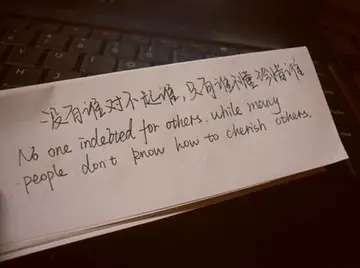 没有谁对不起谁，只有谁不懂珍惜谁
No one indebted for others. while many
people don't know how to cherish others.